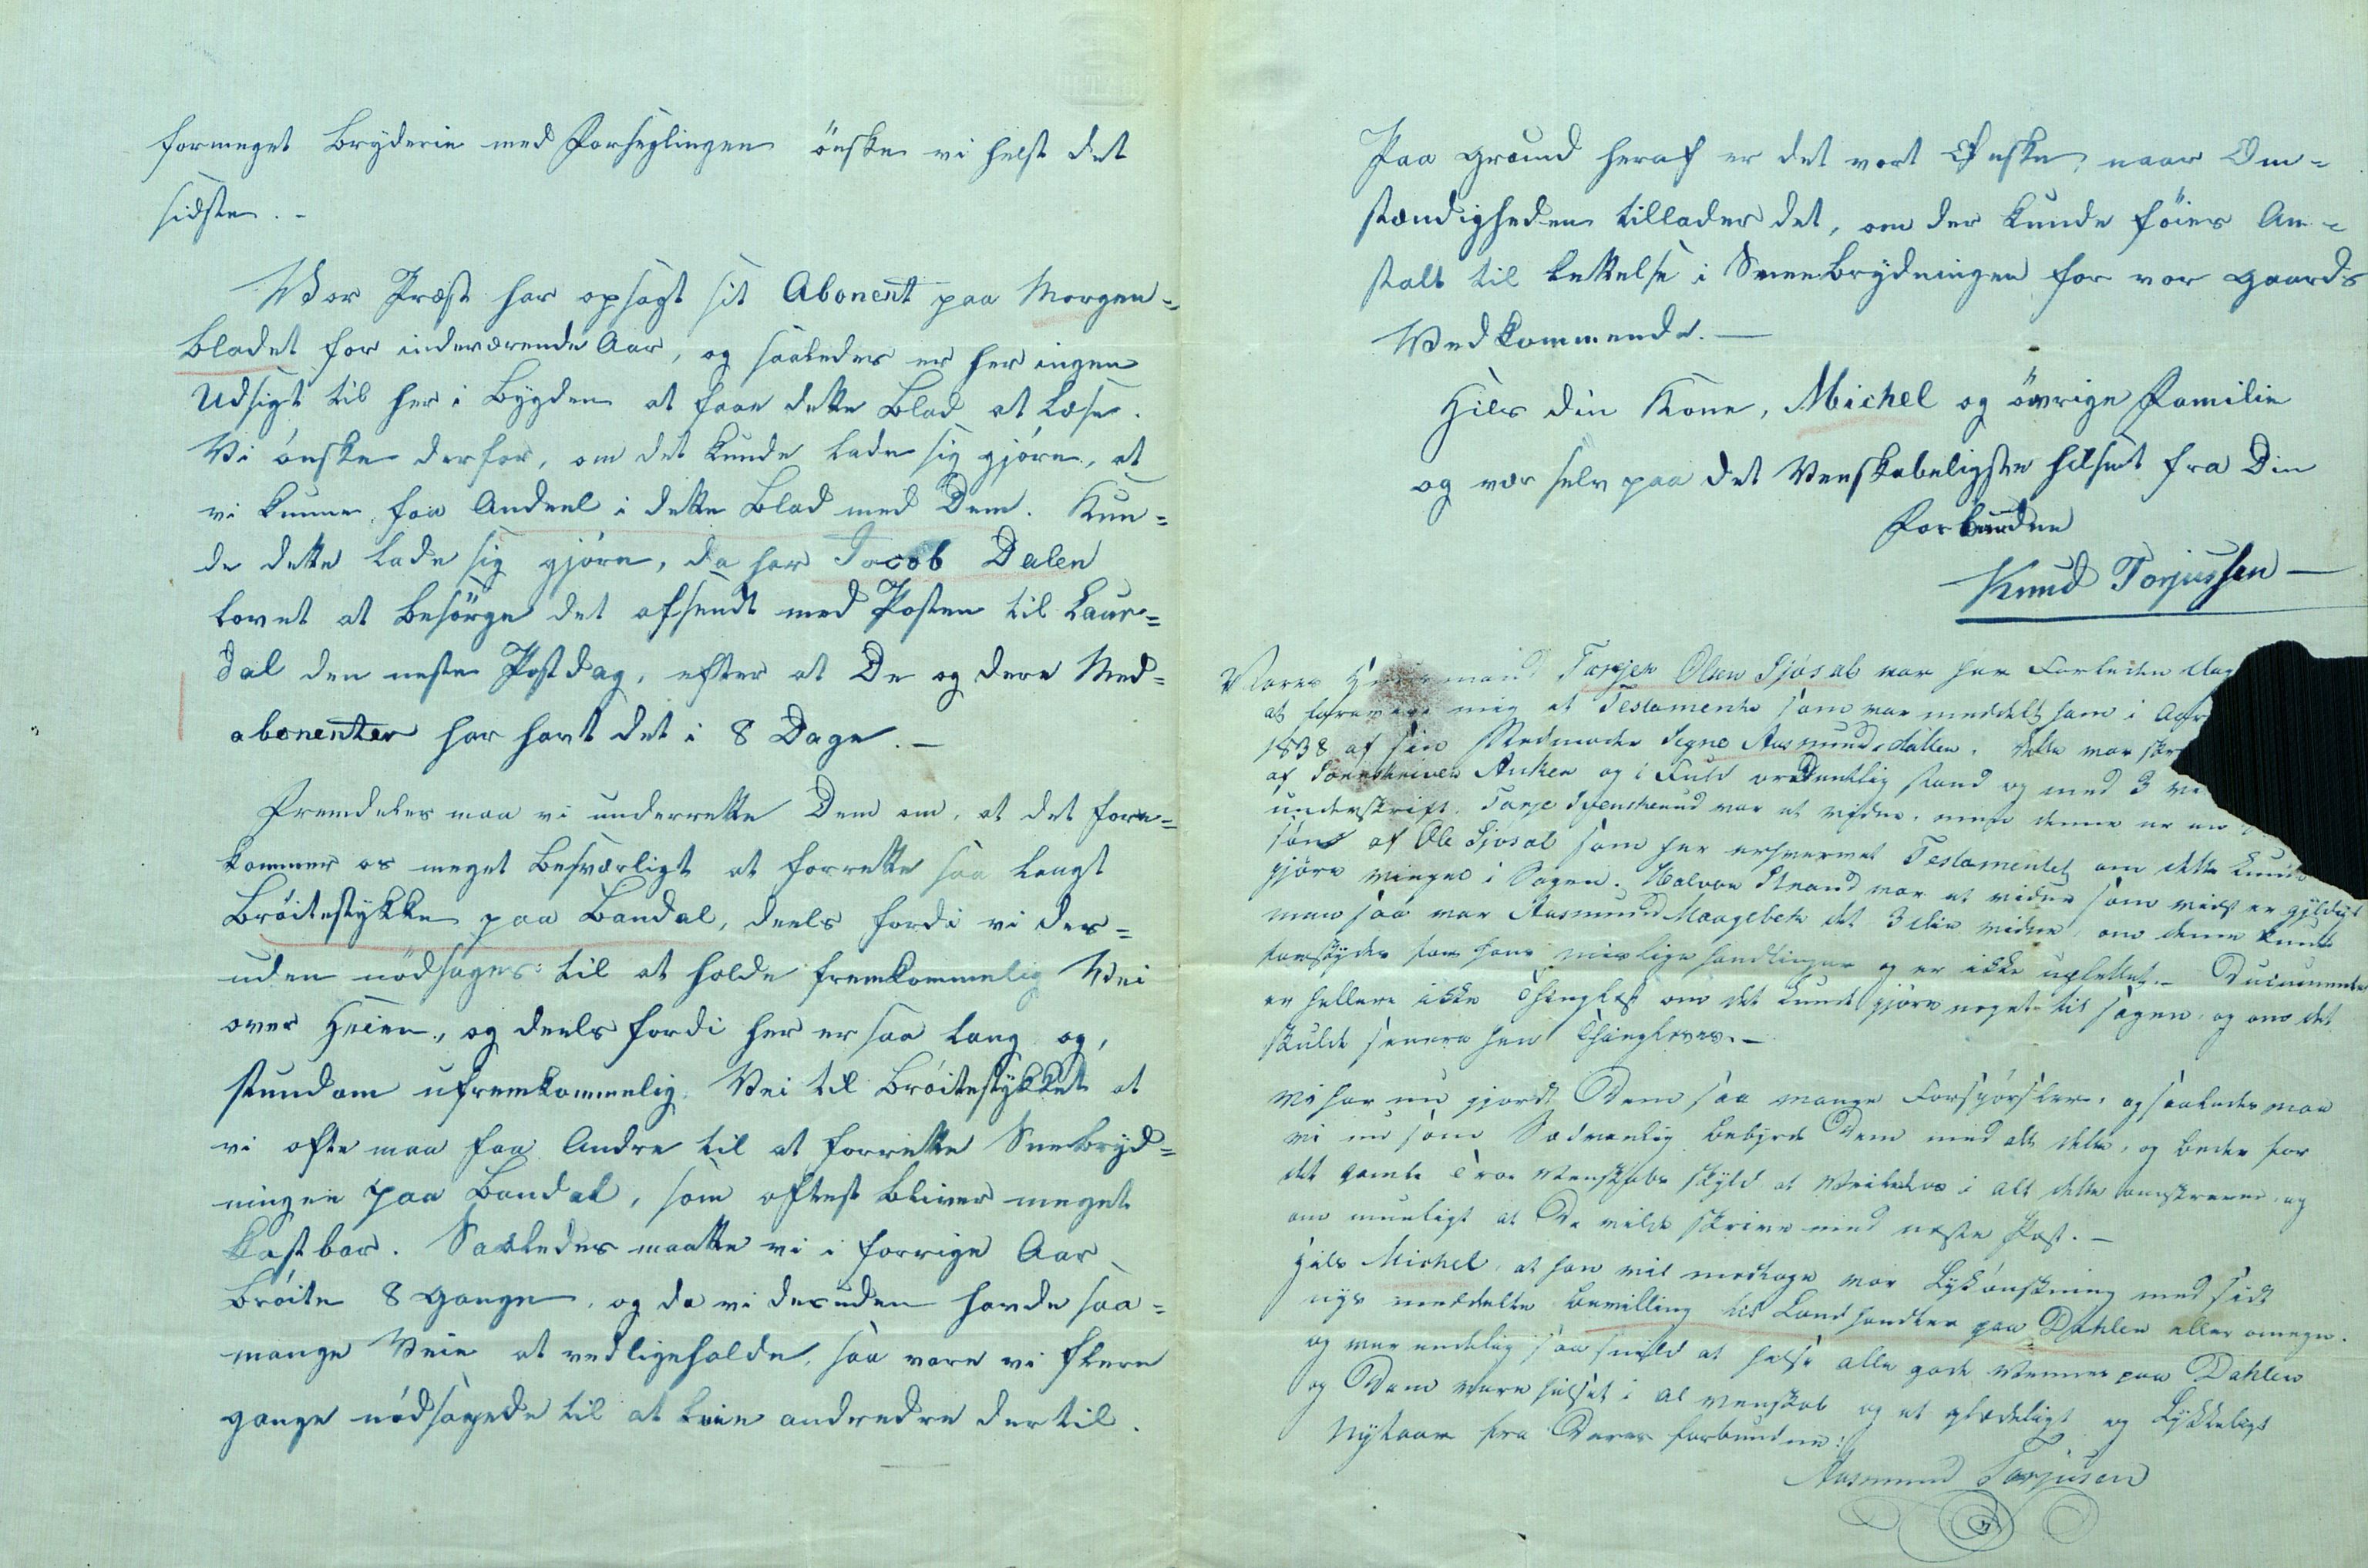 formeget Bryderie med Forseglingen önske vi helst det
sidste. -
Vor Præst har opsagt sit Abonent paa Morgen=
bladet for indeværende Aar, og saaledes er her ingen
Udsigt til her i Bygden at faae dette Blad at læse.
Vi önske derfor, om det kunde lade sig gjöre, at
vi kunne faa Andeel i dette Blad med Dem. Kun=
de dette lade sig gjöre, da har Jacob Dalen
lovet at besörge det afsendt med Posten til Laur=
dal den neste Postdag, efter at De og dere Med=
abonenter har havt det i 8 Dage. —
Fremdeles maa vi underrette Dem om, at det fore=
kommer os meget besværligt at forrette saa langt
Bröitestykke paa Bandal, deels fordi vi des=
uden nödsages til at holde fremkommelig Vei
over Heien, og deels fordi her er saa lang og,
stundom ufremkommelig Vei til Bröitestykket at
vi ofte maa faa Andre til at forrette Sneebryd=
ningen paa Bandal, som oftest bliver meget
kostbar. Saaledes maatte vi i forrige Aar
bröite 8 gange, og da vi desuden havde saa=
mange Veie at vedligeholde, saa vare vi flere
gange nödsagede til at leie andre dertil.
Paa grund heraf er det vort Önske, naar Om=
stændigheden tillader det, om der kunde föies An=
stalt til Lettelse i Sneebrydningen for vor gaards
Vedkommende. —
Hils din Kone, Michel og övrige Familie
og vær selv paa det Venskabeligste hilset fra Din
Forbundne
Knud Torjussen —
Vores mand Torjer Olsen Sjösal var her Forleden dag
at forevise mig et Testamente som var meddelt ham i Aar
1838 af sin Aasmunds datter. dette var
af Anker og i Fuld ordentlig stand og med 3
underskrift. Torje Svenchenud var et vidne, men denne er en
sön af Ole Sjosal som har erhvervet Testamentet om dette kunde
gjöre i Sagen. Halvor Strand var et vidne som vist er gyldigt
men saa var Aasmund Maagebek det 3die vidne, om denne kunde
for hans mislige handlinger og er ikke Documentet
er hellere ikke Thinglæst om det kunde gjöre noget til sagen, og om det
skulde senere hen Thinglæses. —
Vi har nu gjordt Dem saa mange Forspörsler, og saaledes maa
vi nu som Sædvanlig bebyrde Dem med alt dette, og beder for
det gamle Troe Venskabs skyld at Veilede os i alt dette og
om mueligt at De vilde skrive med neste Post. —
Hils Michel, at han vil modtage vor Lykönskning med sidt
nys meddelte bevilling til Landhandler paa Dahlen eller omegn.
og vær endelig saa snild at hilse alle gode Venner paa Dahlen
og Dem være hilset i al venskab og et glædeligt og Lykkeligt
Nytaar fra Deres forbundne:
Aasmund Torjusen